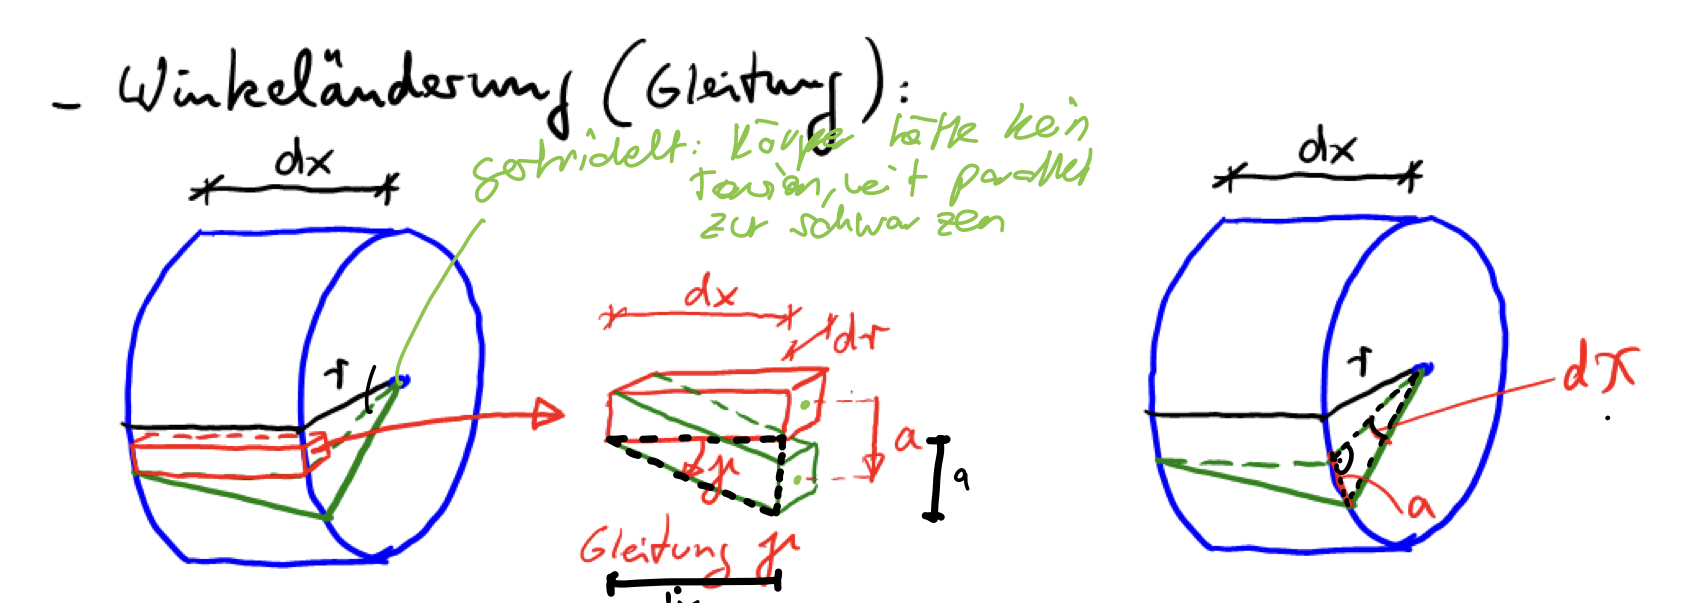 - Winkeländerung (Gleitung):
gestridelt: Körper hätte kein
Torsion, weit parallel
zur schwarzen
dx
r
dx
dr
a
γ
a
Gleitung γ
dx
r
dϰ
a